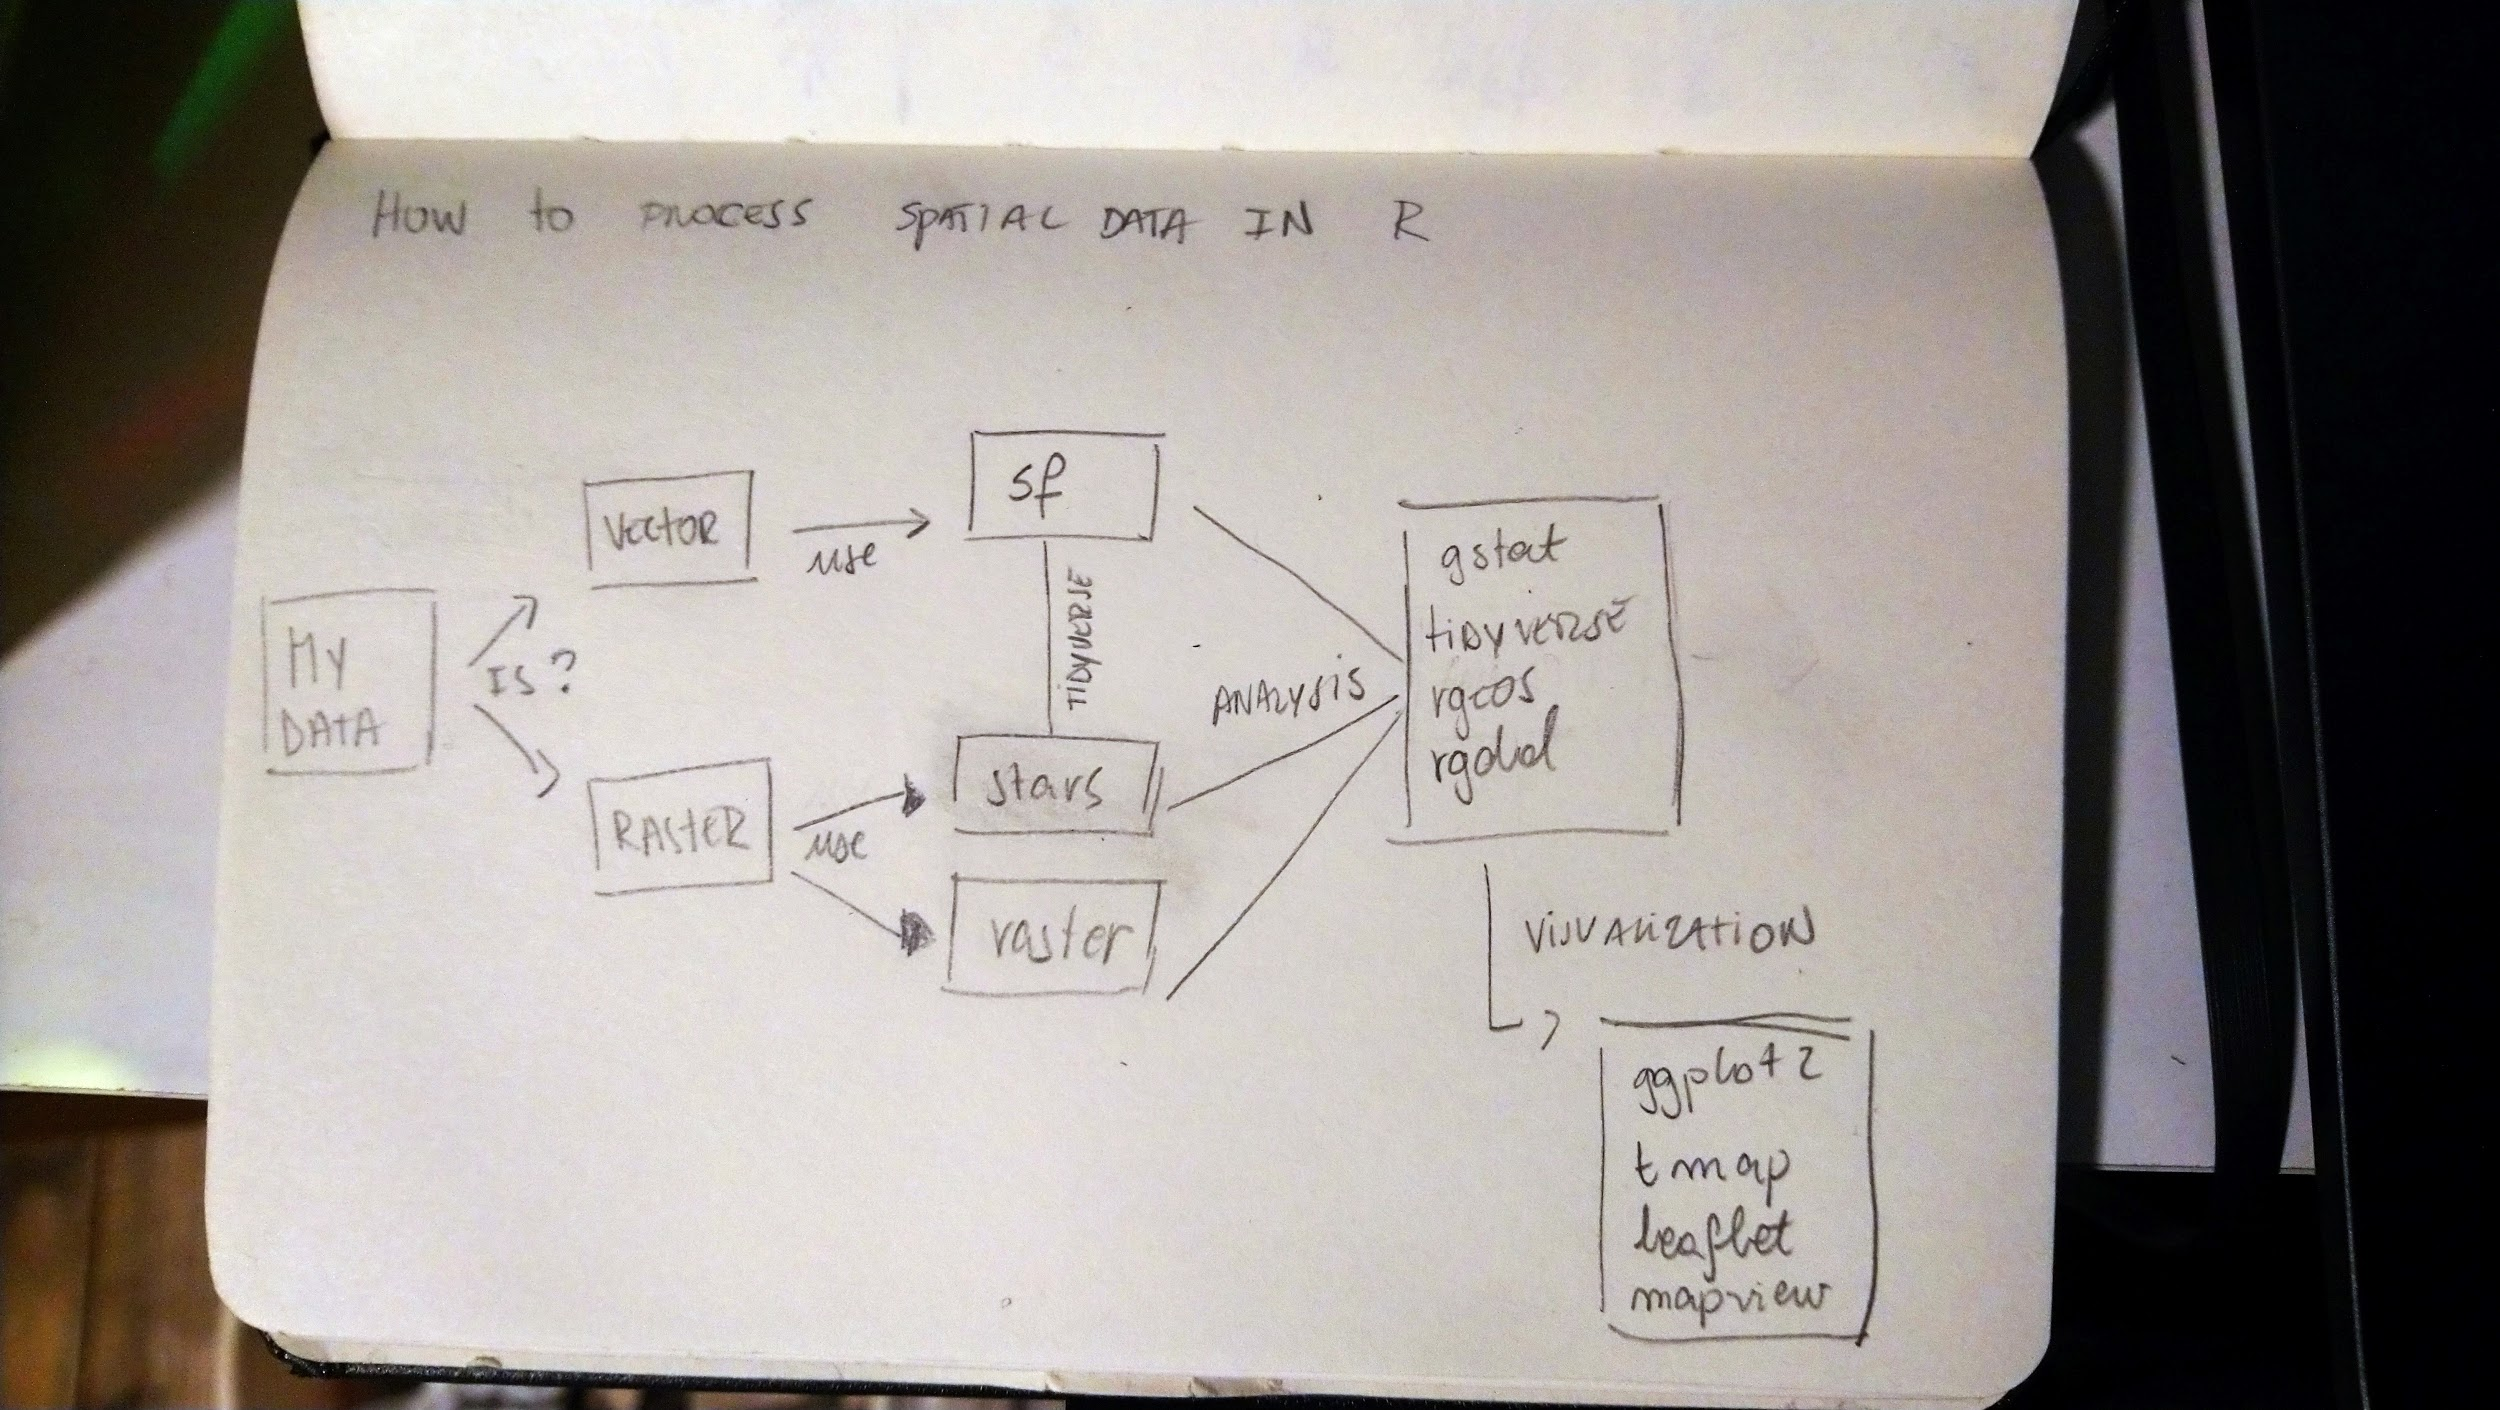 HOW to PROCESS SPATIAL DATA IN R
MY
DATA
IS?
VECTOR
use
sf
TIDYVERSE
RASTER
use
stars
raster
ANALYSIS
gstat
tiDYVERSE
rgeos
rgdal
ViSUALiZATiON
ggplot2
tmap
leaflet
mapview